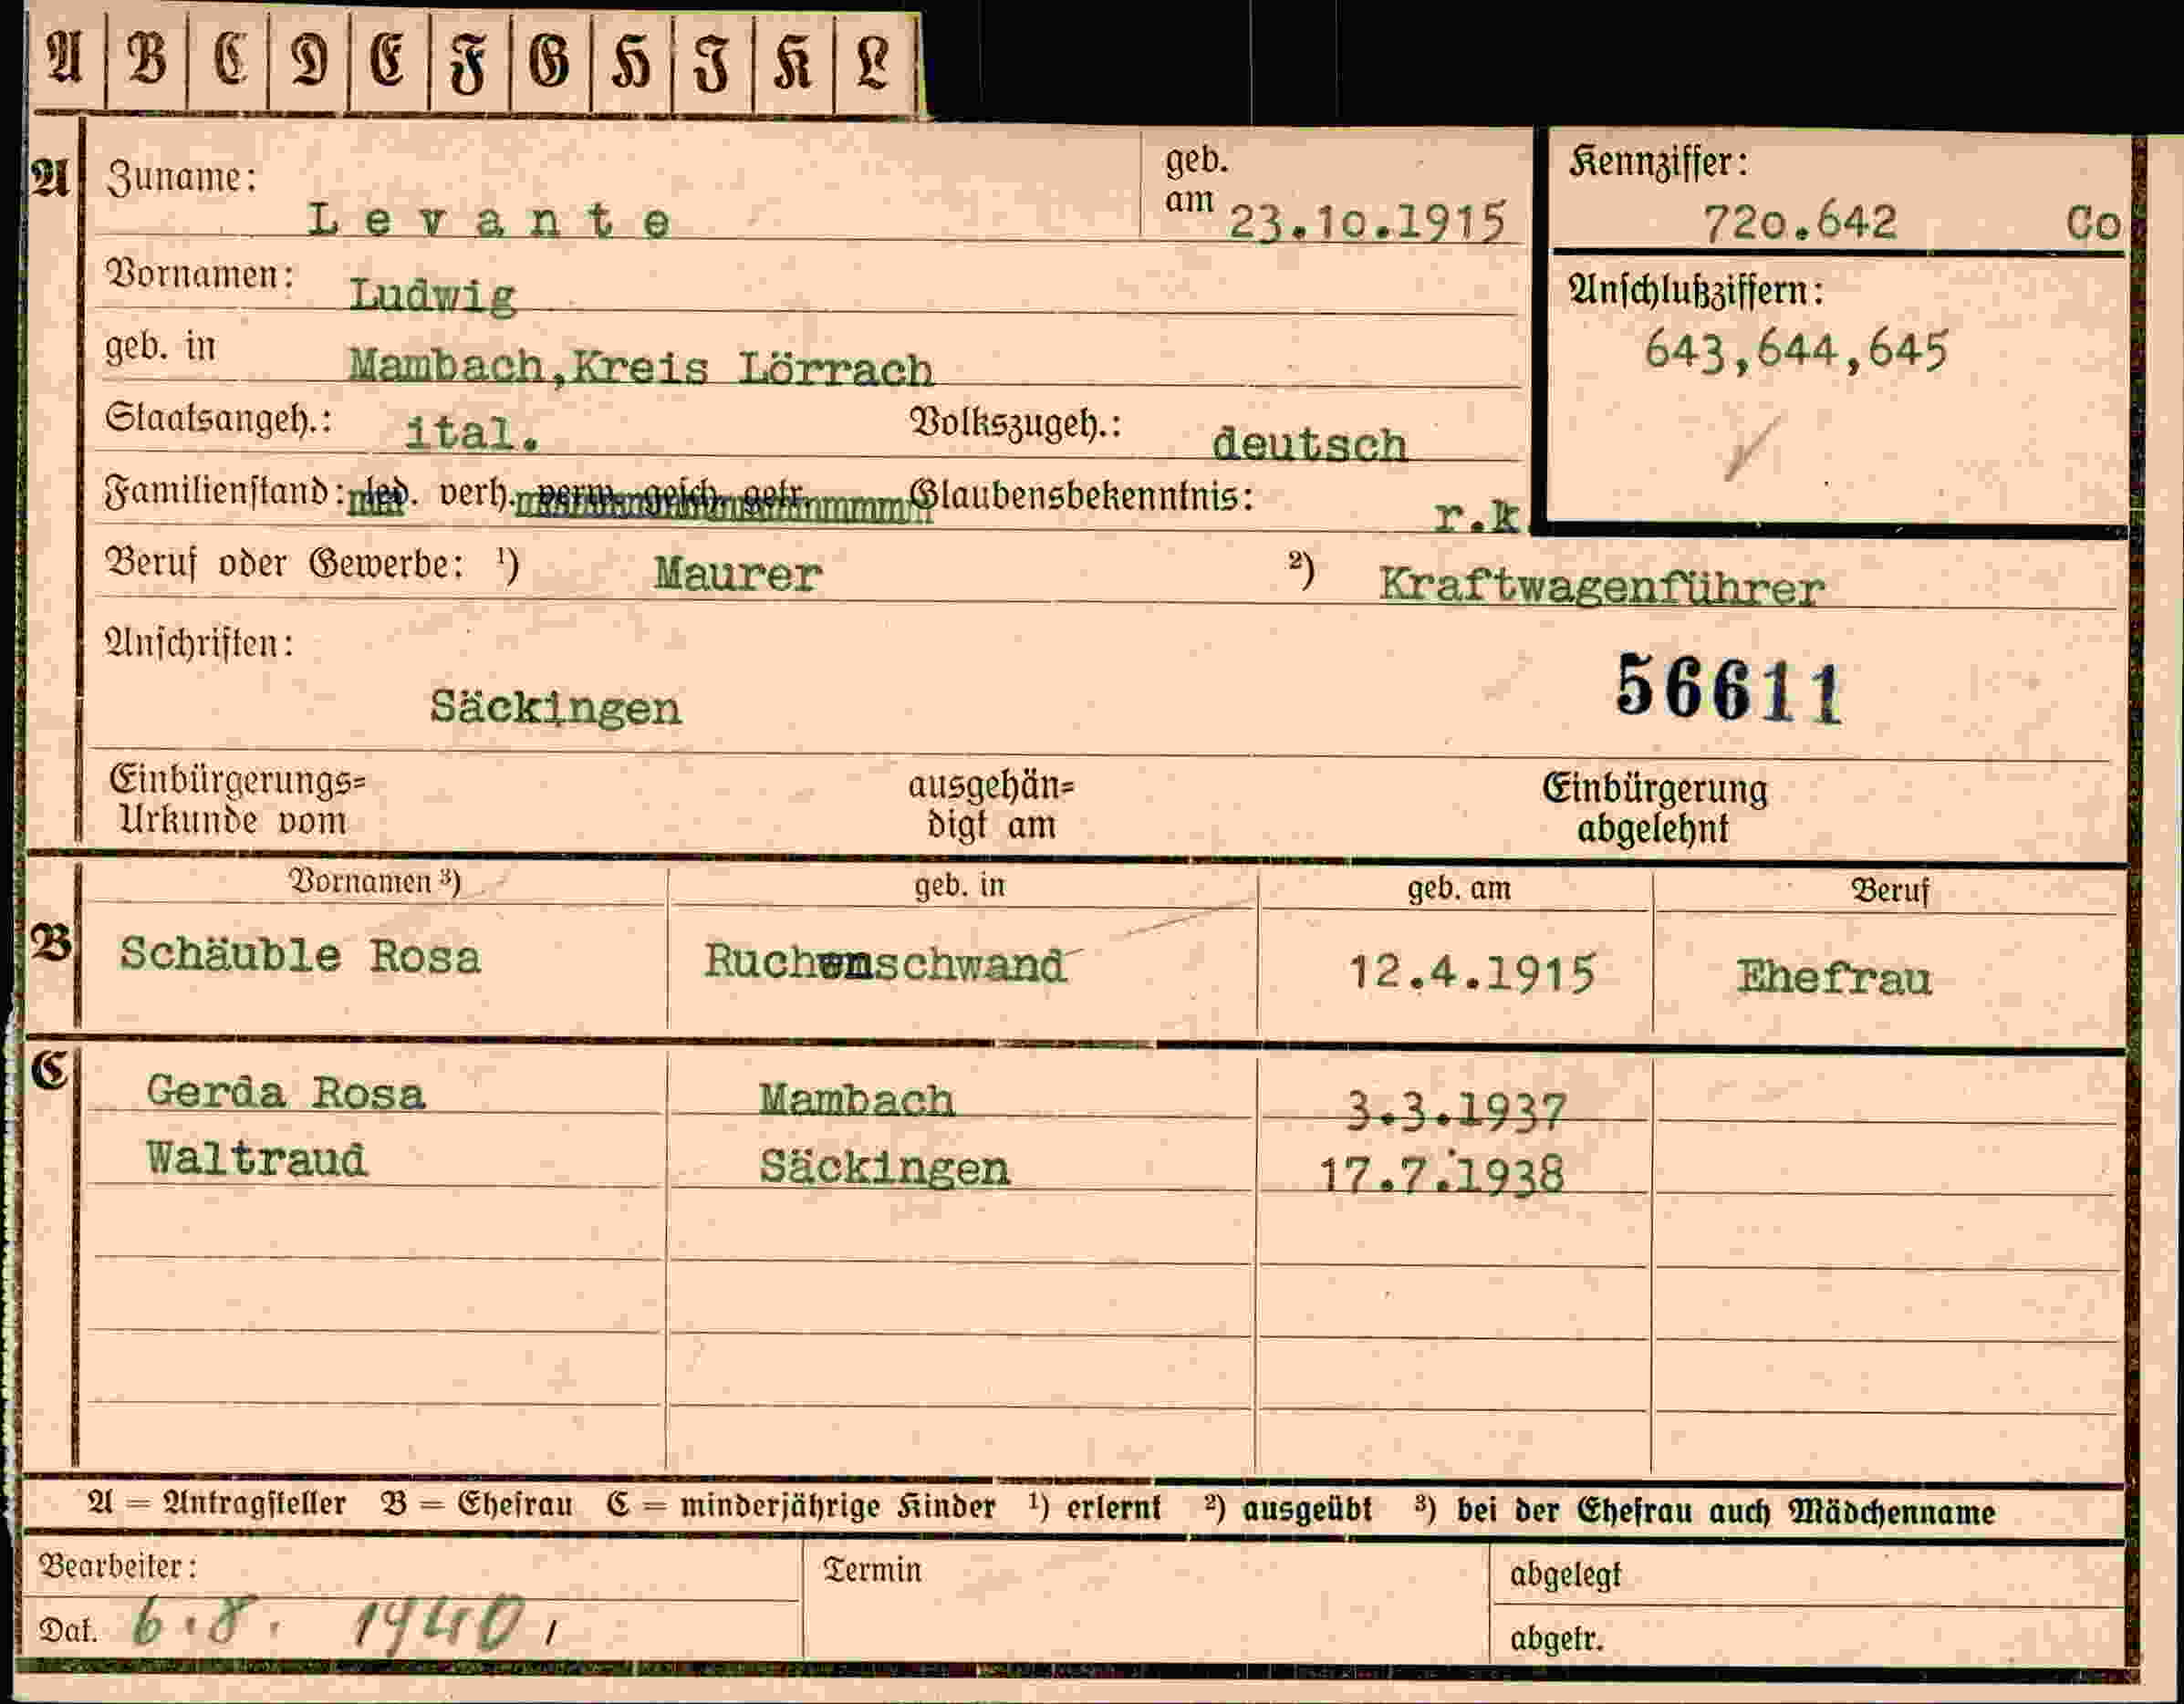 A B C D E F G H I K L
A Zuname: Levante geb. am 23.10.1915
Kennziffer: 720.642 Co
Vornamen: Ludwig
Anschlußziffern:
643,644,645
geb. in Mambach,Kreis Lörrach
Staatsangeh.: ital. Volkszugeh.: deutsch
Familienstand: led. verh. verw. gesch. getr. Glaubensbekenntnis: r.k.
Beruf oder Gewerbe: ¹) Maurer ²) Kraftwagenführer
Anschriften:
Säckingen 56611
Einbürgerungs= Urkunde vom ausgehän= digt am Einbürgerung abgelehnt
Vornamen ³) geb. in geb. am Beruf
B Schäuble Rosa Ruchenschwand 12.4.1915 Ehefrau
C Gerda Rosa Mambach 3.3.1937
Waltraud Säckingen 17.7.1938
A = Antragsteller B = Ehefrau C = minderjährige Kinder ¹) erlernt ²) ausgeübt ³) bei der Ehefrau auch Mädchenname
Bearbeiter: Termin abgelegt
Dat. 6.8. 1940 abgetr.